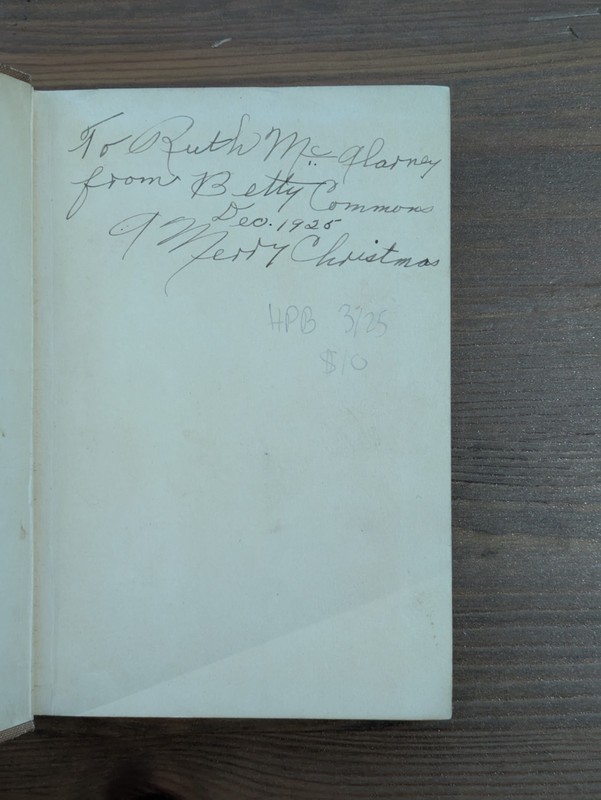 To Ruth McGlarney
from Betty Commons
Dec. 1925
A Merry Christmas
HPB 3/25
$10